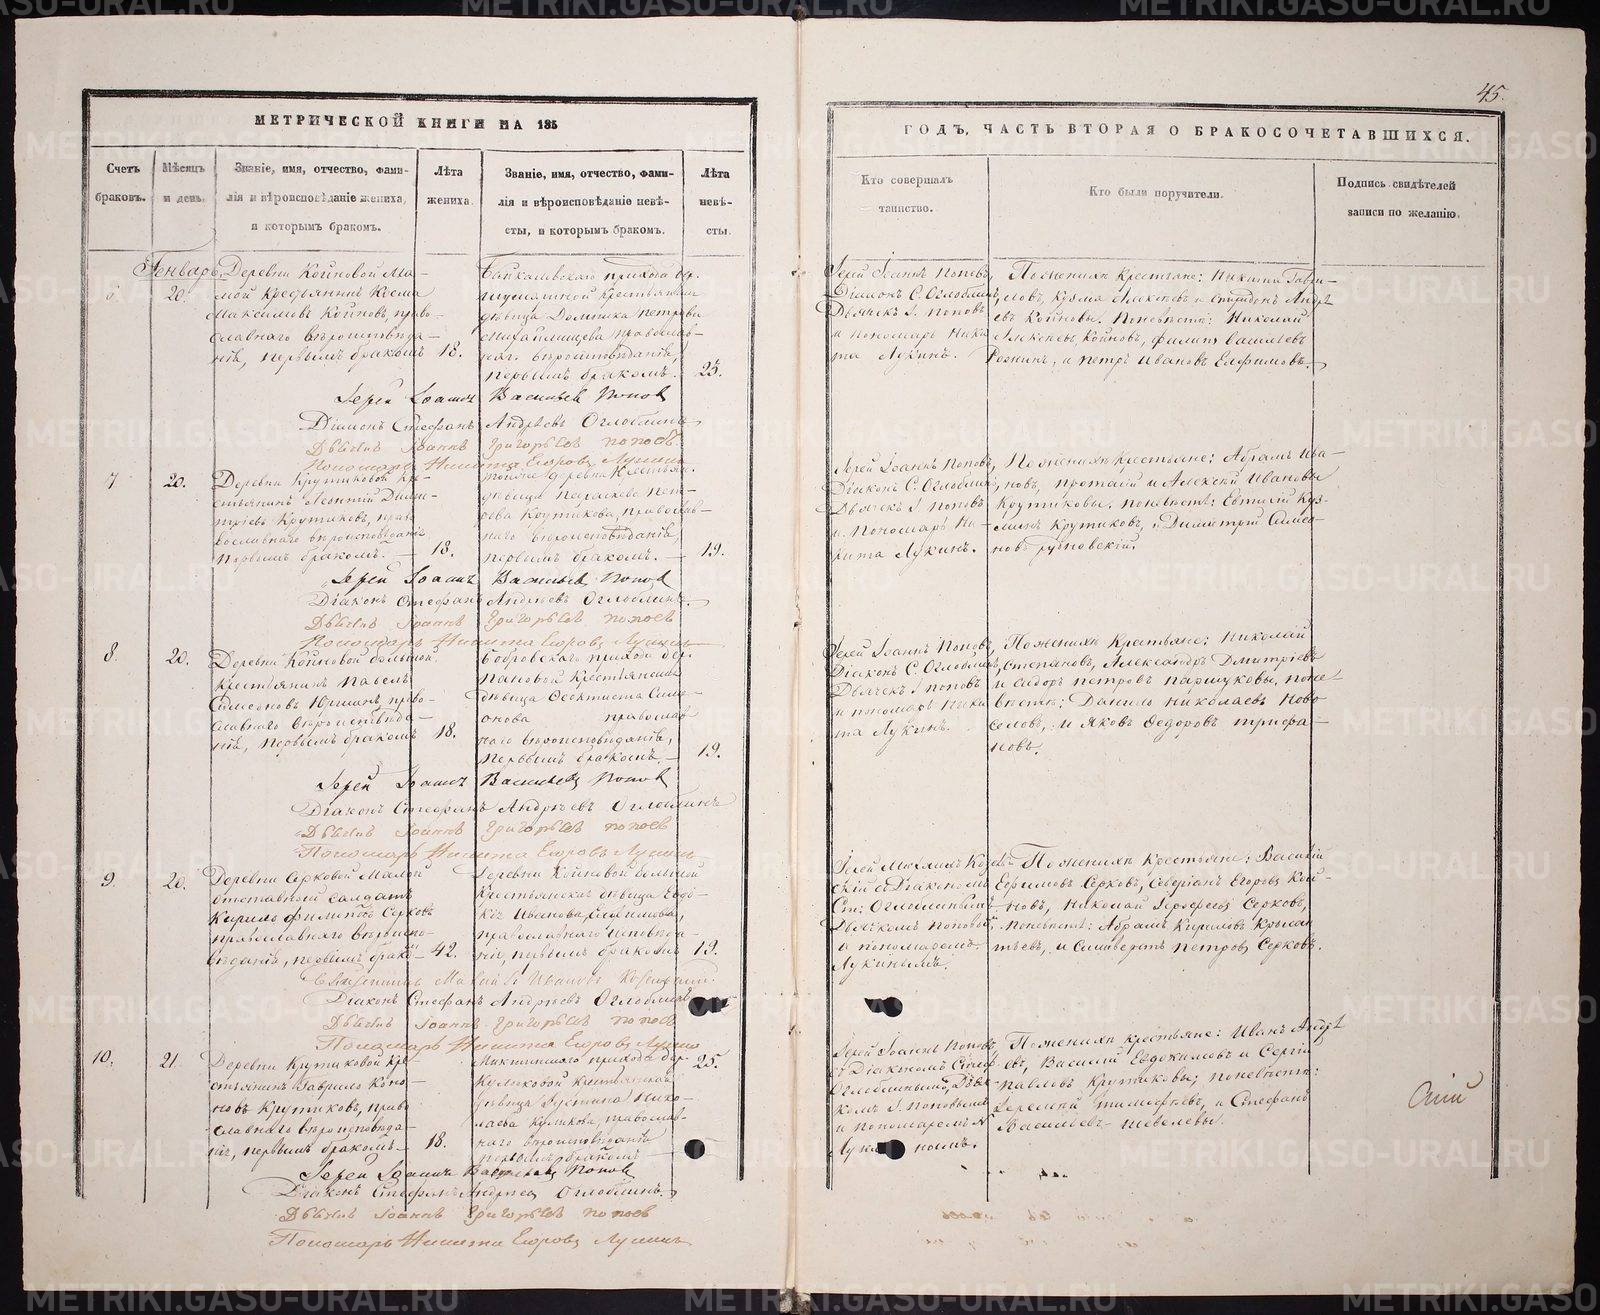 45.
МЕТРИЧЕСКОЙ КНИГИ НА 185
Счетъ браковъ.
Мѣсяцъ и день.
Званіе, имя, отчество, фами-
лія и вѣроисповѣданіе жениха,
и которымъ бракомъ.
Лѣта жениха.
Званіе, имя, отчество, фами-
лія и вѣроисповѣданіе невѣ-
сты, и которымъ бракомъ.
Лѣта невѣ-
сты.
Генварь
20.
Деревни Койновой Ма-
лой крестьянинъ Косма
Максимовъ Койновъ, право-
славнаго вѣроисповѣда-
нія, первымъ бракомъ
18.
прихода дер.
дѣвица Домника Петрова
православ-
наго вѣроисповѣданія,
первымъ бракомъ.
25.
Іерей Іоаннъ Васильевъ Поповъ
Діаконъ Стефанъ Андреевъ Оглоблинъ
Дьячекъ Іоаннъ Григорьевъ Поповъ
Пономарь Никита Егоровъ Лукинъ
7
20.
Деревни Крутиковой кре-
стьянинъ Леонтій Дими-
тріевъ Крутиковъ, право
вославнаго вѣроисповѣданія
первымъ бракомъ.
18.
дѣвица Параскева Пет-
рова Крутикова, православ-
наго вѣроисповѣданія,
первымъ бракомъ.
19.
Іерей Іоаннъ Васильевъ Поповъ
Діаконъ Стефанъ Андреевъ Оглоблинъ.
Дьячекъ Іоаннъ Григорьевъ Поповъ
Пономарь Никита Егоровъ Лукинъ
8.
20.
Деревни Койновой большой,
крестьянинъ Павелъ
Симеоновъ право-
славнаго вѣроисповѣда-
нія, первымъ бракомъ
18.
Бобровскаго прихода дер.
Пановой крестьянская
дѣвица Феоктиста Симе-
онова православ
наго вѣроисповѣданія,
первымъ бракомъ.
19.
Іерей Іоаннъ Васильевъ Поповъ
Діаконъ Стефанъ Андреевъ Оглоблинъ
Дьячекъ Іоаннъ Григорьевъ Поповъ
Пономарь Никита Егоровъ Лукинъ
9.
20.
Деревни Серковой Малой
отставный солдатъ
Кирило Филиповъ Серковъ
православнаго вѣроиспо-
вѣданія, первымъ брако-
42.
Деревни Койновой большой
крестьянская дѣвица Евдо-
кія Иванова
православнаго исповѣда-
нія, первымъ бракомъ
19.
Діаконъ Стефанъ Андреевъ Оглоблинъ
Дьячекъ Іоаннъ Григорьевъ Поповъ
Пономарь Никита Егоровъ Лукинъ
10.
21.
Деревни Крутиковой кре-
стьянинъ Гаврило Коно-
новъ Крутиковъ, право
славнаго вѣроисповѣда-
нія, первымъ бракомъ
18.
прихода дер.
Куликовой крестьянская
дѣвица Устинія Нико-
лаева Куликова, православ-
наго вѣроисповѣданія
первымъ бракомъ
25.
Іерей Іоаннъ Васильевъ Поповъ
Діаконъ Стефанъ Андреевъ Оглоблинъ.
Дьячекъ Іоаннъ Григорьевъ Поповъ
Пономарь Никита Егоровъ Лукинъ
ГОДЪ, ЧАСТЬ ВТОРАЯ О БРАКОСОЧЕТАВШИХСЯ.
Кто совершалъ таинство.
Кто были поручители.
Подпись свидѣтелей
записи по желанію.
Іерей Іоаннъ Поповъ,
Діаконъ С. Оглоблинъ,
Дьячекъ І. Поповъ
и пономарь Ники
та Лукинъ.
По женихѣ крестьяне: Никита Гаври-
ловъ, Кузма Алексѣевъ и Спиридонъ Андрѣ
евъ Койновы. По невѣстѣ: Николай
Алексѣевъ Койновъ, Филипъ Васильевъ
и Петръ Ивановъ Елфимовъ.
Іерей Іоаннъ Поповъ,
Діаконъ С. Оглоблинъ,
Дьячекъ І. Поповъ
и Пономарь Ни-
кита Лукинъ.
По женихѣ крестьяне: Абрамъ Ива-
новъ, Протасій и Алексѣй Ивановы
Крутиковы, по невѣстѣ: Евтихій Куз-
минъ Крутиковъ, и Димитрій Симео-
новъ
Іерей Іоаннъ Поповъ,
Діаконъ С. Оглоблинъ,
Дьячекъ І. Поповъ
и пономарь Ники
та Лукинъ.
По женихѣ крестьяне: Николай
Степановъ, Александръ Дмитріевъ
и Сидоръ Петровъ Паршуковы, по не
вѣстѣ: Данило Николаевъ Ново
селовъ, и Яковъ Федоровъ Трифа-
новъ.
Діакономъ
Ст: Оглоблинымъ
Дьячкомъ Поповымъ
и пономаремъ
Лукинымъ.
По женихѣ крестьяне: Василій
Ефимовъ Серковъ, Северіанъ Егоровъ Кой-
новъ, Николай Серковъ,
по невѣстѣ: Абрамъ Кириловъ
и Селиверстъ Петровъ Серковъ.
Іерей Іоаннъ Поповъ
Діакономъ Стеф.
Оглоблинымъ, Дьяч-
комъ І. Поповымъ
и Пономаремъ Н
По женихѣ крестьяне: Иванъ Андрѣ
евъ, Василій Евдокимовъ и Сергій
Павловъ Крутиковы; по невѣстѣ:
Еремей Тимофѣевъ, и Стефанъ
Васильевъ Шевелевы.
METRIKI.GASO-URAL.RU